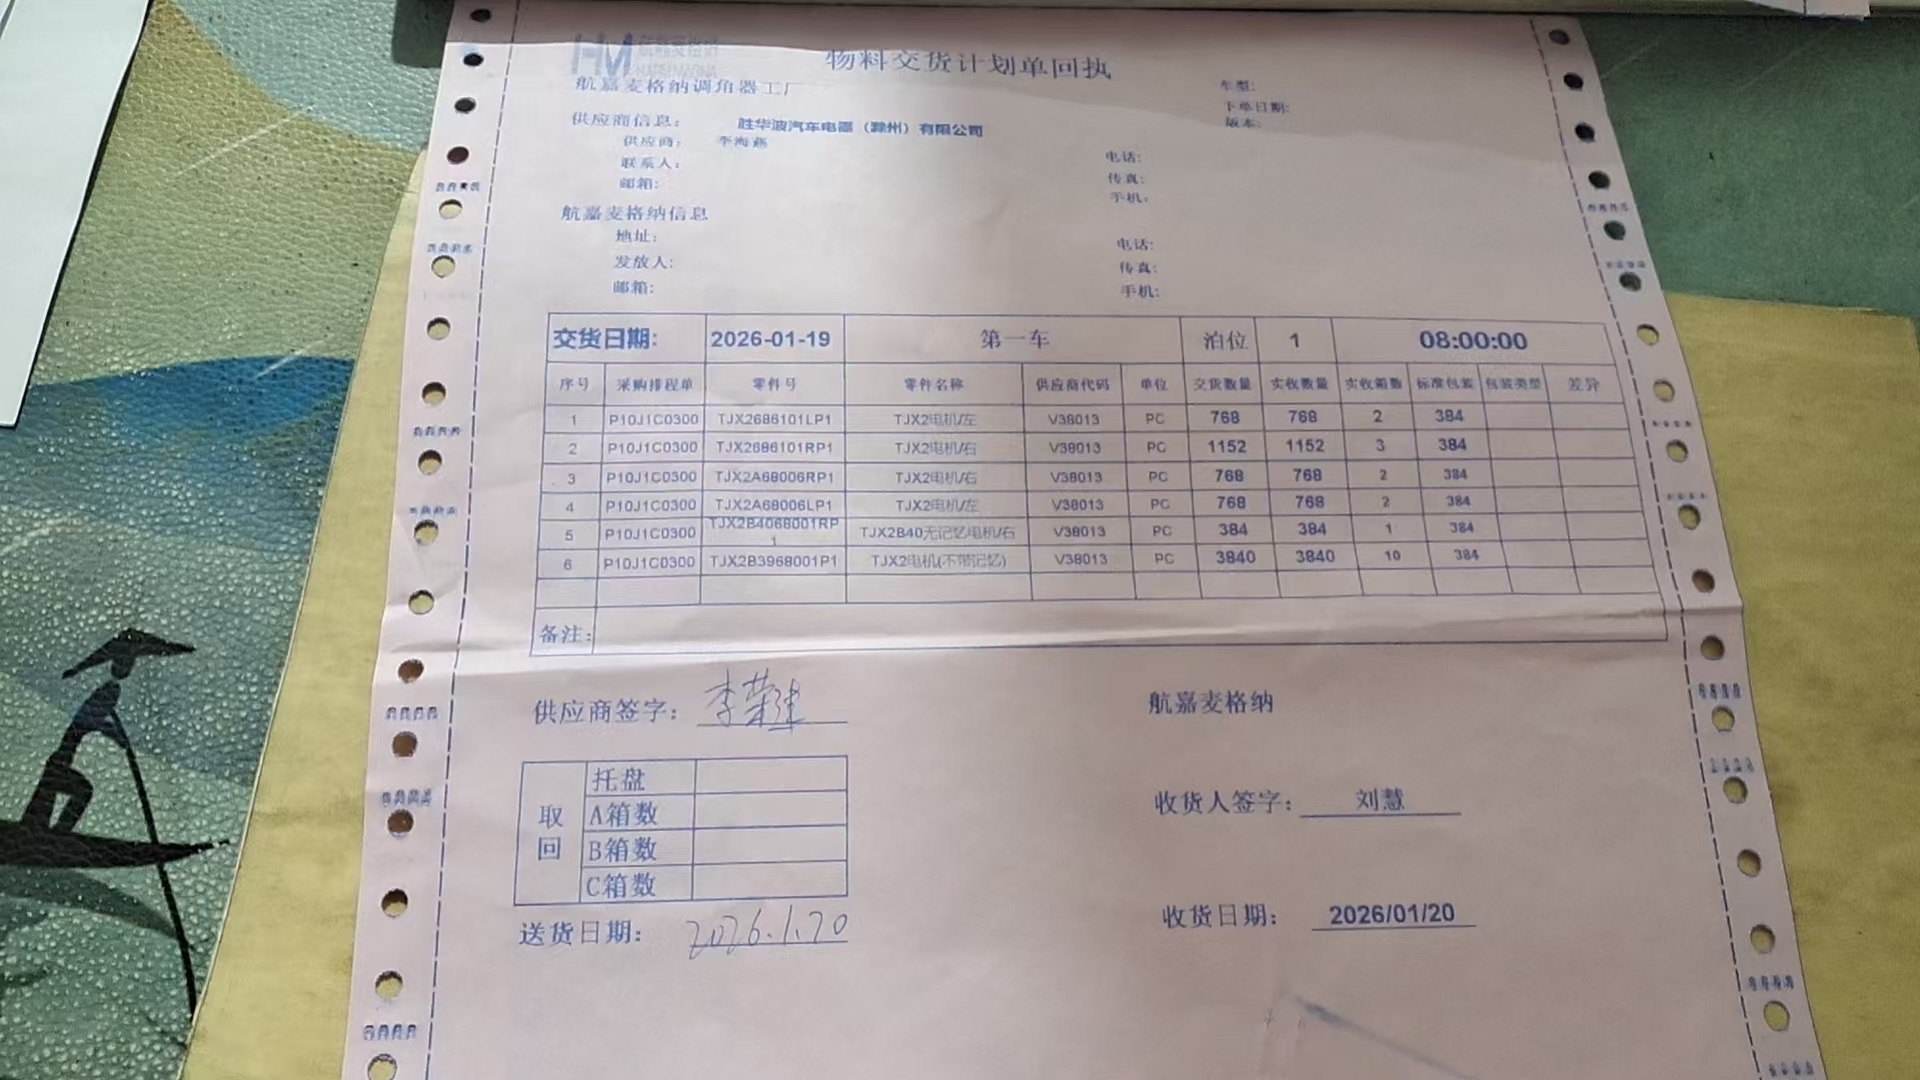 HM 航嘉麦格纳
物料交货计划单回执
航嘉麦格纳调角器工厂
车型:
下单日期:
版本:
供应商信息: 胜华波汽车电器（滁州）有限公司
供应商: 李海燕
联系人: 电话:
邮箱: 传真:
手机:
航嘉麦格纳信息
地址: 电话:
发放人: 传真:
邮箱: 手机:
交货日期: 2026-01-19 第一车 泊位 1 08:00:00
序号 采购排程单 零件号 零件名称 供应商代码 单位 交货数量 实收数量 实收箱数 标准包装 包装类型 差异
1 P10J1C0300 TJX2686101LP1 TJX2电机/左 V38013 PC 768 768 2 384
2 P10J1C0300 TJX2686101RP1 TJX2电机/右 V38013 PC 1152 1152 3 384
3 P10J1C0300 TJX2A68006RP1 TJX2电机/右 V38013 PC 768 768 2 384
4 P10J1C0300 TJX2A68006LP1 TJX2电机/左 V38013 PC 768 768 2 384
5 P10J1C0300 TJX2B4068001RP1 TJX2B40无记忆电机/右 V38013 PC 384 384 1 384
6 P10J1C0300 TJX2B3968001P1 TJX2电机(不带记忆) V38013 PC 3840 3840 10 384
备注:
供应商签字: 李荣 航嘉麦格纳
取回
托盘
A箱数
B箱数
C箱数
收货人签字: 刘慧
送货日期: 2026.1.20
收货日期: 2026/01/20